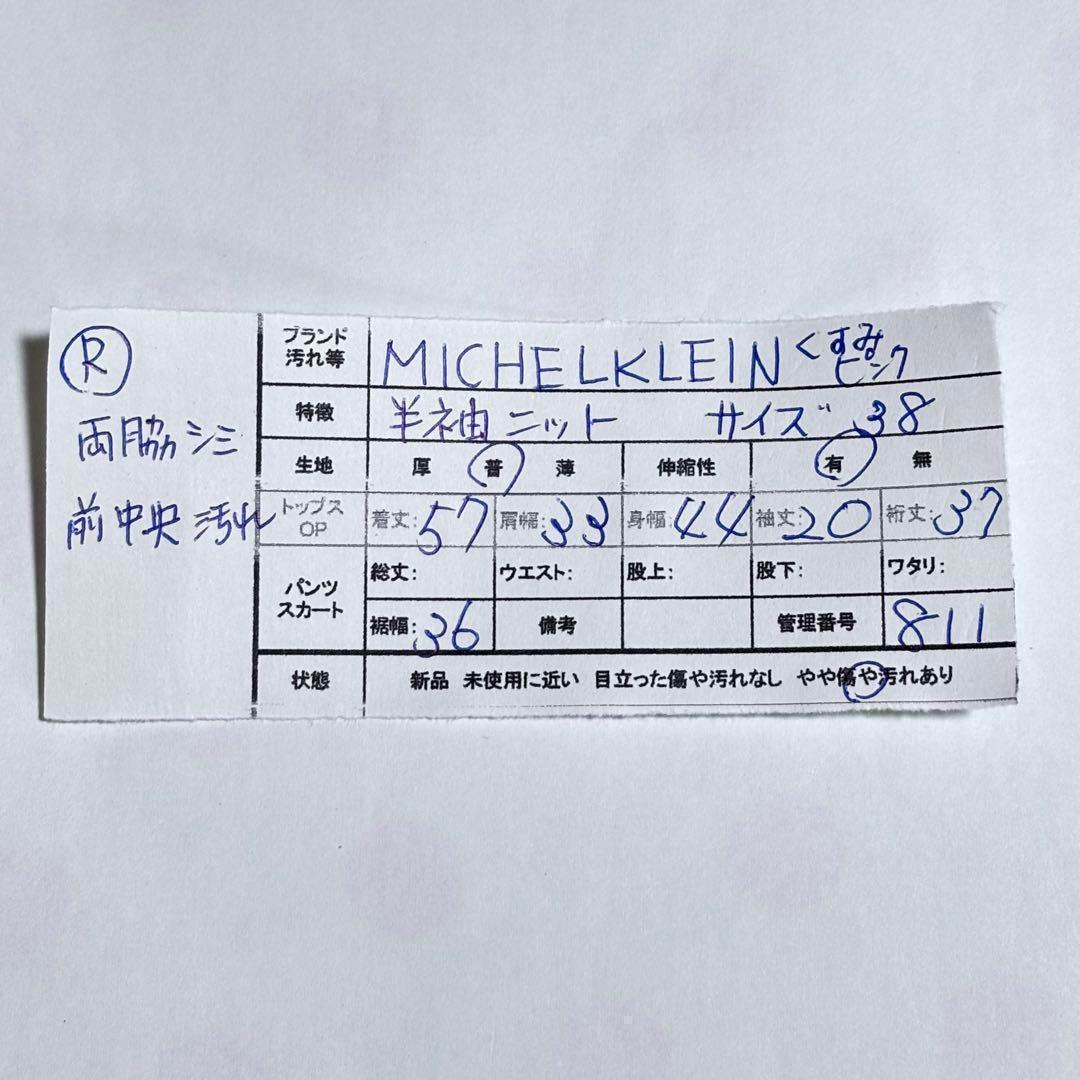 R
両脇シミ
前中央汚れ
ブランド 汚れ等 MICHELKLEIN くすみ ピンク
特徴 半袖ニット サイズ 38
生地 厚 普 薄 伸縮性 有 無
トップス OP 着丈:57 肩幅:33 身幅:44 袖丈:20 裄丈:37
パンツ スカート 総丈: ウエスト: 股上: 股下: ワタリ:
裾幅:36 備考 管理番号 811
状態 新品 未使用に近い 目立った傷や汚れなし やや傷や汚れあり